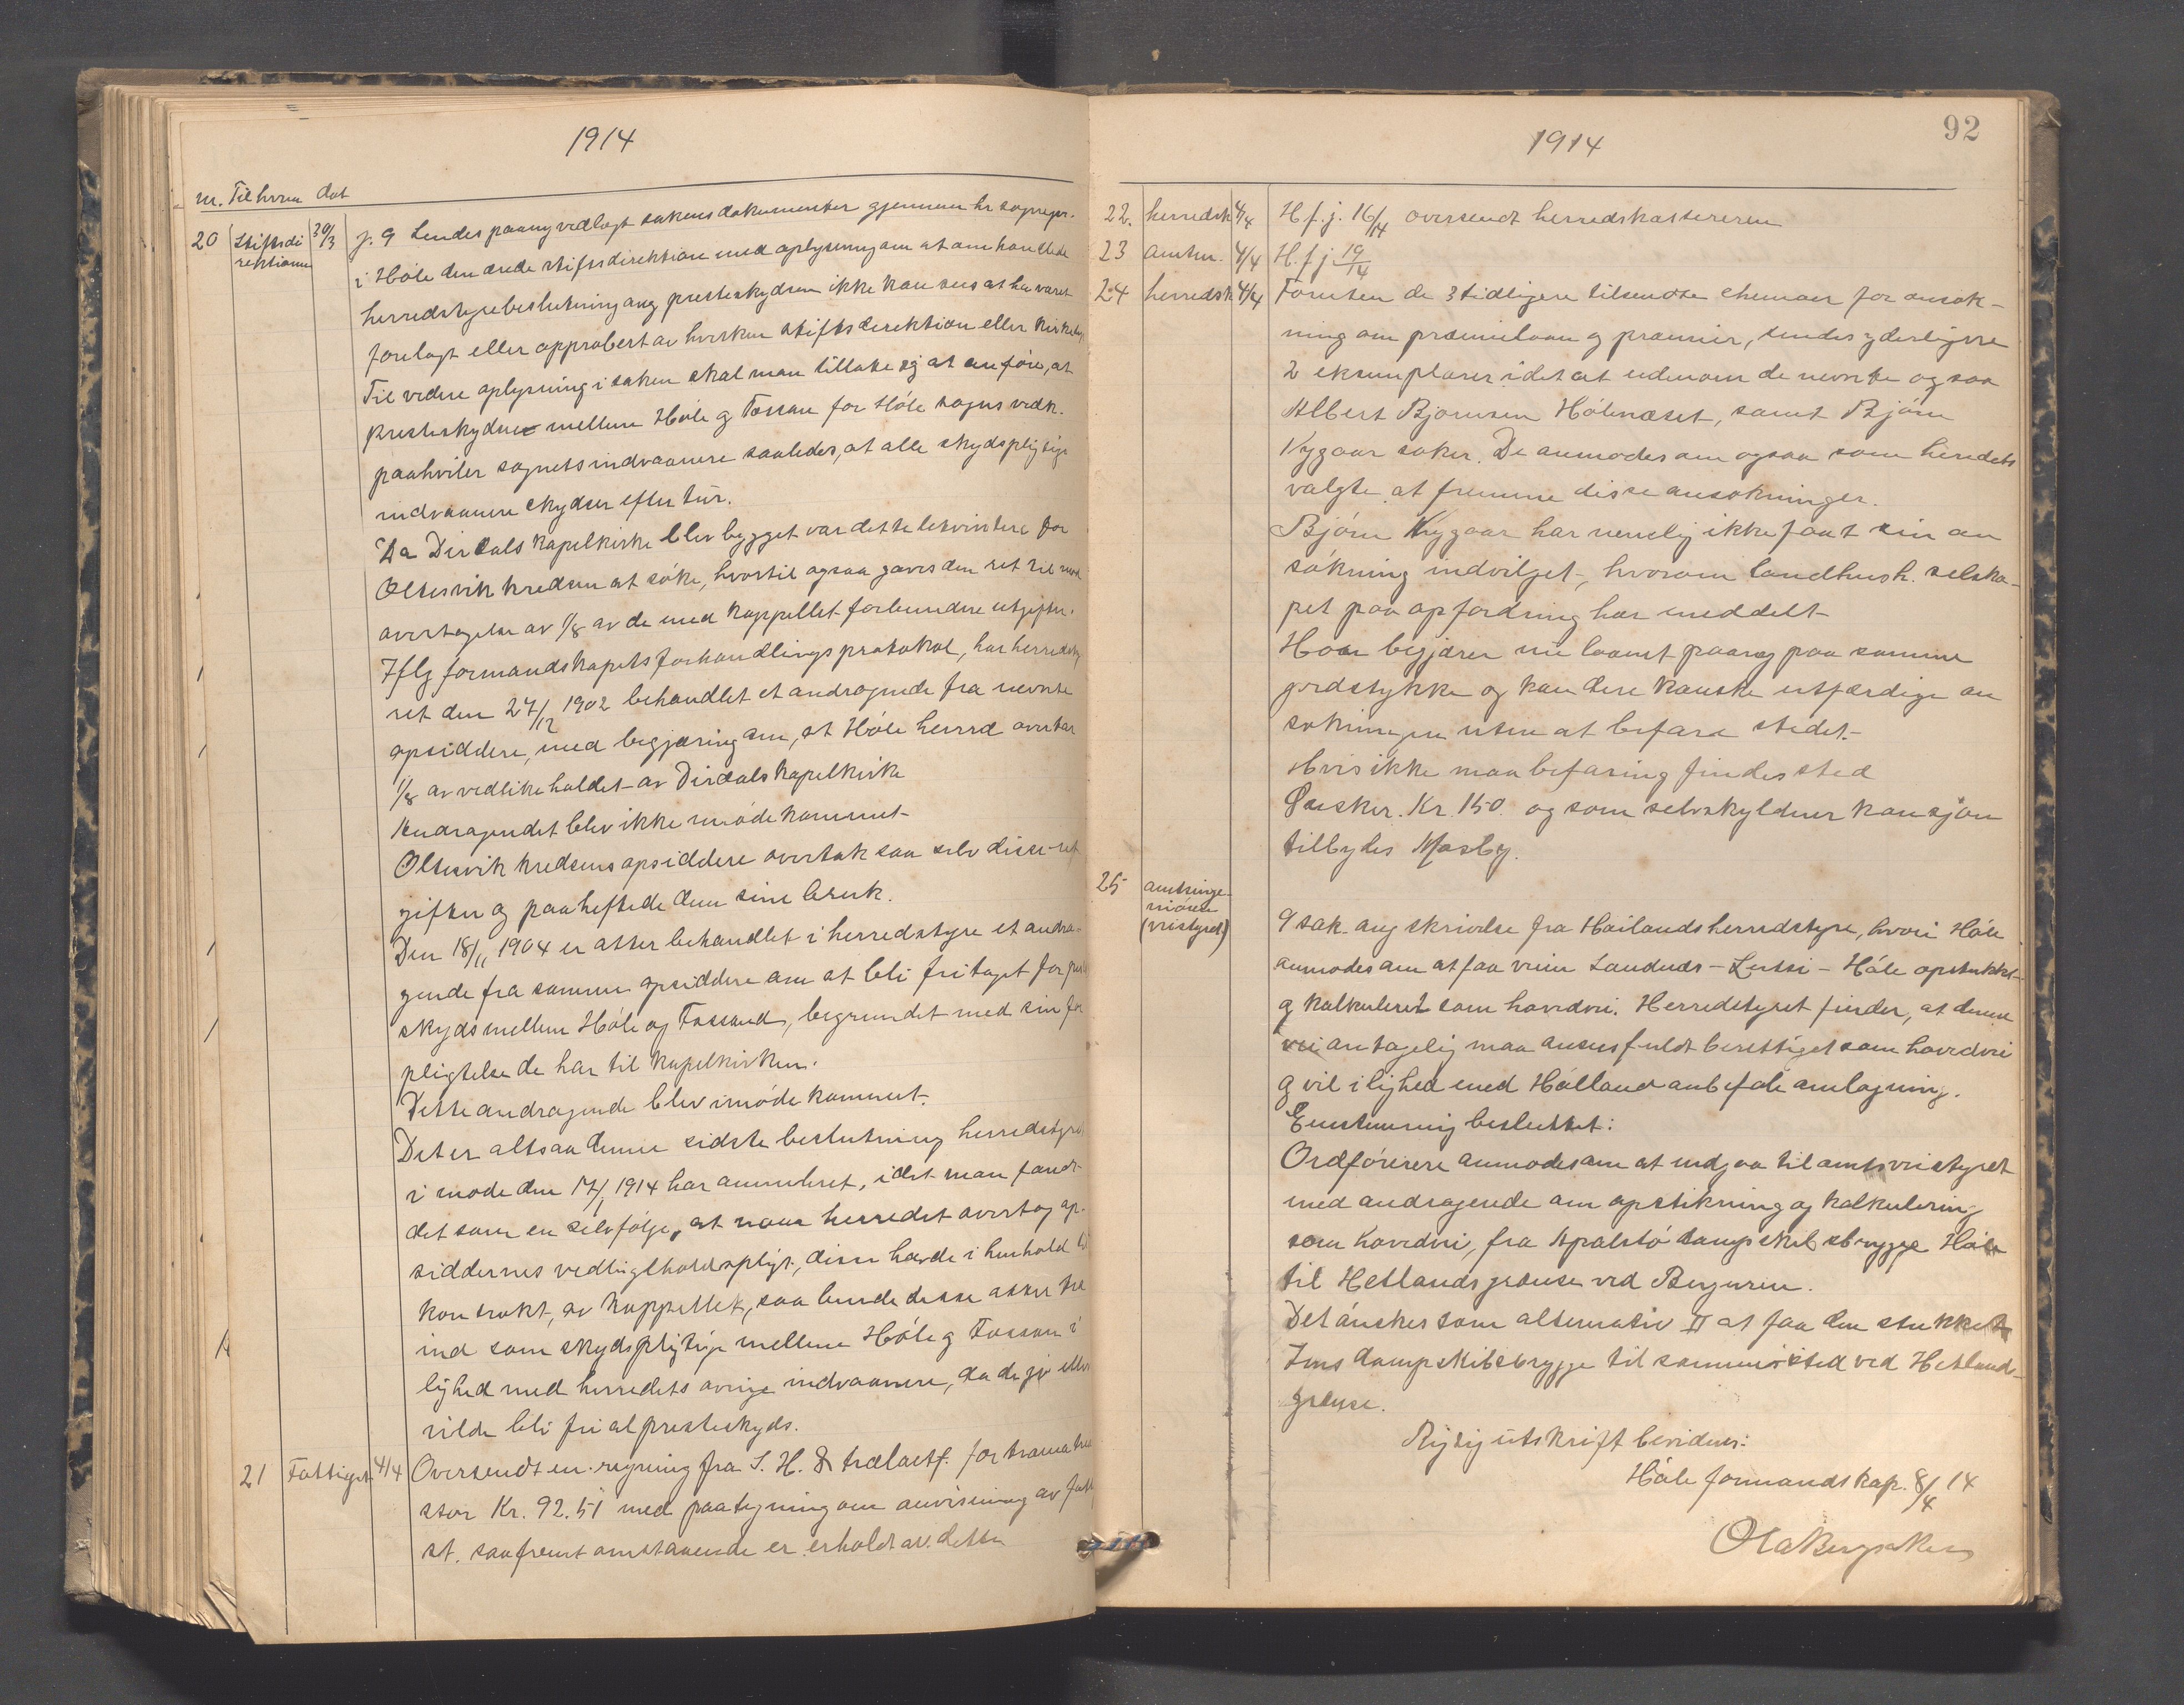 1914
nr. Til hvem dat
20 Stiftsdirektionen 30/3 j. 9 Sendes paany vedlagt sakens dokumenter gjennem hr sognepr.
i Høle den ærede stiftsdirektion med oplysning om at omhandlede
herredstyrebeslutning ang presteskydsen ikke kan sees at ha været
forelagt eller approbert av hverken stiftsdirektion eller
Til videre oplysning i saken skal man tillate sig at anføre, at
presteskydsen mellem Høle og Fossan for Høle sogns vedk.
paahviler sognets indvaanere saaledes, at alle skydspligtige
indvaanere skydser efter tur.
Da Dirdals kapelkirke blev bygget var dette bekvemtere for
Oltesvik kredsen at søke, hvortil ogsaa gaves den ret til
overtagelse av 1/8 av de med kappellet forbundne utgifter.
Iflg formandskapets forhandlingsprotokol, har herredsty
ret den 27/12 1902 behandlet et andragende fra nevnte
opsiddere, med begjæring om, at Høle herred overtar
1/8 av vedlikeholdet av Dirdals kapelkirke
Andragendet blev ikke imødekommet
Oltesvik kredsens opsiddere overtok saa selv disse ut
gifter og paaheftede dem sine bruk.
Den 18/11 1904 er atter behandlet i herredstyre et andra-
gende fra samme opsiddere om at bli fritaget for
skyds mellem Høle og Fossand, begrundet med sin for
pligtelse de har til kapelkirken.
Dette andragende blev imødekommet.
Det er altsaa denne sidste beslutning herredstyret
i møde den 17/1 1914 har annuleret, idet man fandt
det som en selvfølge, at naar herredet overtog op-
siddernes vedligeholdspligt, disse havde i henhold til
kontrakt, av kappellet, saa burde disse atter træ
ind som skydspligtige mellem Høle og Fossan i
lighed med herredets øvrige indvaanere, da de jo ellers
vilde bli fri al presteskyds.
21 Fattigst. 4/4 Oversendt en regning fra S. H. for
stor Kr. 92.51 med paategning om anvisning av
st. saafremt omstaaende er erholdt av dette
1914
92
22. herredsk 4/4 H. f. j. 16/14 oversendt herredskassereren
23 amtm. 4/4 H. f. j 19/14
24 herredsk 4/4 Foruten de 3 tidligere tilsendte chemaer for ansøk-
ning om præmielaan og præmier, sendes yderligere
2 eksemplarer idet at udenom de nevnte og saa
Albert Bjørnsen Hølenæset, samt Bjørn
Nygaar søker. De anmodes om ogsaa som herredets
valgte at fremme disse ansøkninger.
Bjørn Nygaar har nemlig ikke faat sin an
søkning indvilget, hvorom landhush. selska-
pet paa opfordring har meddelt
Han begjærer nu laanet paany paa samme
jordstykke og kan dere kanske utfærdige an
søkningen uten at befare stedet.
Hvis ikke maa befaring finde sted
Ønsker. Kr. 150. og som selvskyldner kausjon
tilbydes Mosby.
25 amtsinge-
niøren
(veistyret)
9 sak ang skrivelse fra Høilands herredstyre, hvori Høle
anmodes om at faa veien Sandnes - Lutsi - Høle opstukket
og kalkuleret som hovedvei. Herredstyret finder, at denne
vei antagelig maa ansees fuldt berettiget som hovedvei
og vil i lighed med Høiland anbefale anlægning.
Enstemmig besluttet:
Ordførerere anmodes om at indgaa til amtsveistyret
med andragende om opstikning og kalkulering
som hovedvei, fra Apalstø dampskibsbrygge Høle
til Hetlands grænse ved Berguren.
Det ønskes som alternativ II at faa den stukket
Ims dampskibsbrygge til samme sted ved Hetlands
grænse.
Rigtig utskrift bevidnes:
Høle formandskap. 8/4 14
Ola Bergsaker